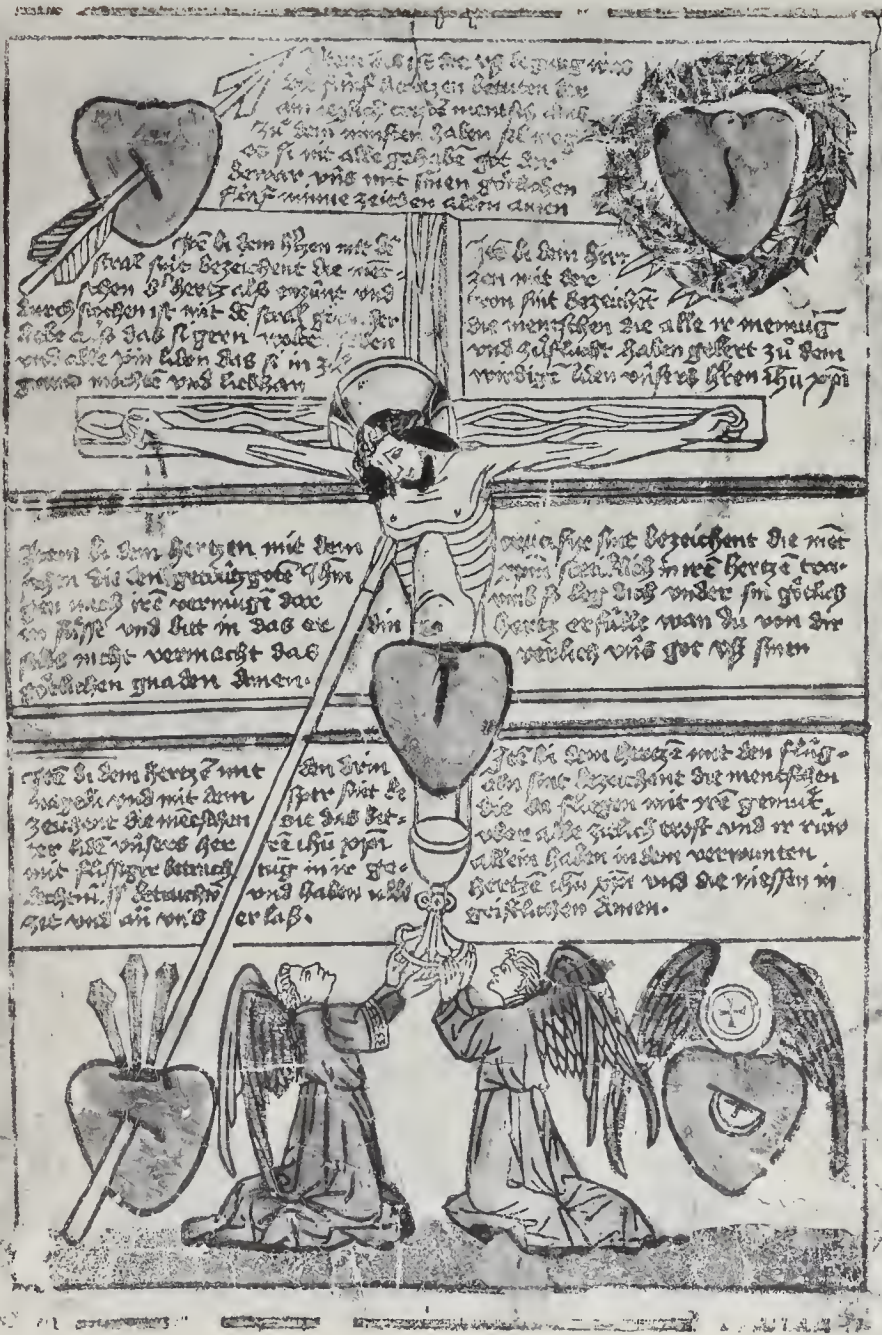 Item dis ist die vß legung was
die fünf hertzen betuten der
ain jeglich mentsch ains
zu dem minsten haben sol mag
ob si nit alle gehabē got der
bewar vns mit sinen götlichen
fünf minne zeichen allen amen
Itē bi dem htzen mit dē
stral sint bezeichent die men-
schen hertz als enzünt vnd
durchstochen ist mit dē stral
liebe das si gern
vnd alle pin liden das si in
möchtē vnd liebhan
Itē bi dem hertzen mit der
cron sint bezeichēt
die mentschen die alle ir meinūg
vnd zuflucht haben gekert zu dem
wirdigē liden vnsers hren ihu xpi
Item bi dem hertzen mit dem crucifix sint bezeichent die mēt
schen die den gecrützgotē ihm xpm in irē hertzē tra-
gen nach irē vermugē dar vmb so leg dich vnder sin götlich
füsse vnd bitt in das er din hertz erfülle wan du von dir
selbs nicht vermacht das verlich vns got vß sinen
götlichen gnaden Amen.
Itē bi dem hertzē mit den drin
nageln vnd mit dem sper sint be
zeichent die mēschen die das bit-
ter lidē vnsers herrē ihu xpi
mit flissiger betrachtūg in ir ge-
vnd haben alle
zit vnd erlaß.
Itē bi dem hertzē mit den flüg-
eln sint bezeichent die mentschen
die da fliegen mit irē gemüt
vber alle zitlich trost vnd ir rüw
allein haben in dem verwunten
hertzē ihu xpi vnd die niessen in
geistlichen Amen.